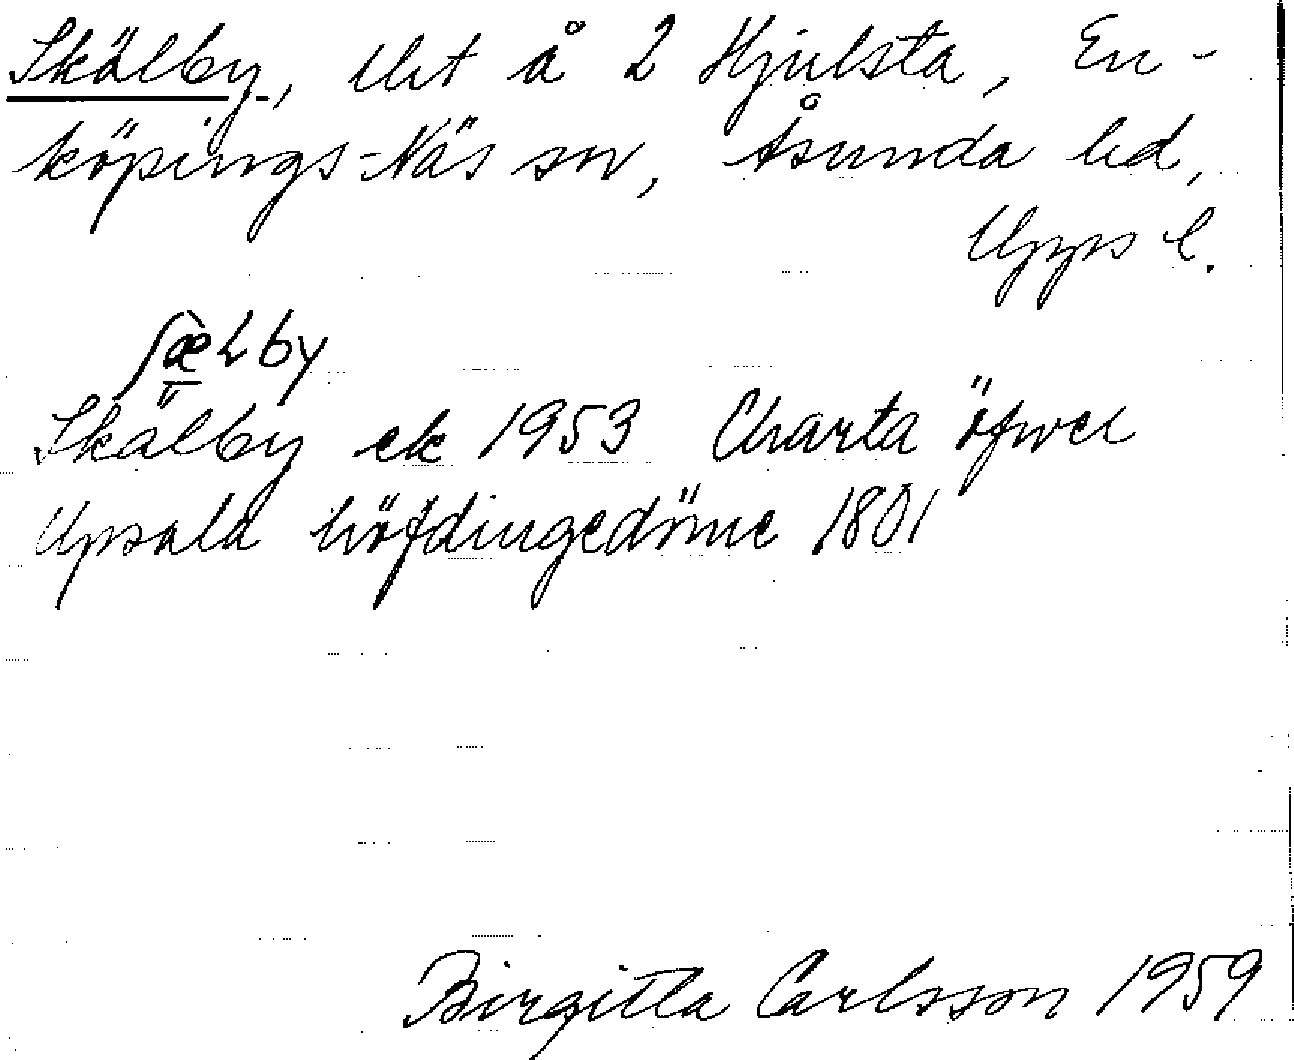 Skälby, Utt å 2 Hjulsta, En-
köpings-Näs sn, Åsunda hd,
Upps l.
ʃæ̀lby
Skälby ek 1953 Charta öfwer
Upsala höfdingedöme 1801
Birgitta Carlsson 1959